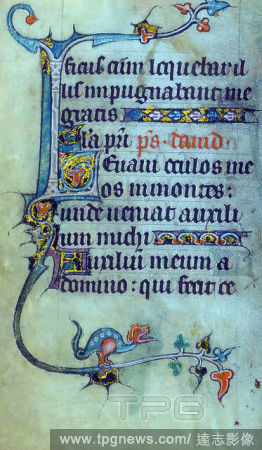 ficus cum loquebar il
lis impugnabant me
gratis
Gl'a pri. ps. david
Levavi oculos me
os in montes:
unde veniat auxili
um michi
Auxiliu meum a
domino: qui fecit ce
TPG
www.tpgnews.com/ 達志影像